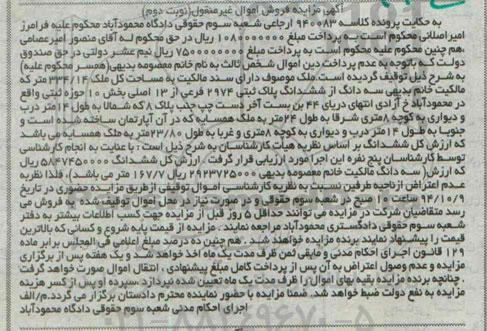 آگهی مزایده فروش اموال غیرمنقول(نوبت دوم)
به حکایت پرونده کلاسه ۹۴۰۰۸۳ ارجاعی شعبه سوم حقوقی دادگاه محمودآباد محکوم علیه فرامرز
امیراصلانی محکوم است به پرداخت مبلغ ۱۰۸۰۰۰۰۰۰۰ ریال در حق محکوم له آقای منصور امیرعصامی
،هم چنین محکوم علیه محکوم است به پرداخت مبلغ ۷۵۰۰۰۰۰۰۰ ریال نیم عشر دولتی در حق صندوق
دولت کـه باتوجه به عدم پرداخت دین اموال شخص ثالث به نام خانم معصومه بدیهی(همسر محکوم علیه)
به شرح ذیل توقیف گردیده است.ملک موصوف دارای سند مالکیت به مساحت کل ملک ۳۳۴/۱۴ متر که
مالکیت خانم بدیهی سه دانگ از ششدانگ پلاک ثبتی ۲۹۷۴ فرعی از ۱۳ اصلی بخش ۱۰ حوزه ثبتی واقع
در محمودآباد خ آزادی انتهای دریای ۴۴ بن بست آخر دست چپ جنب پلاک ۸ که شمالا به طول ۱۴متر درب
و دیواری به کوچه ۸متری شرقا به طول ۲۴متر به ملک همسایه که در آن آپارتمان ساخته شده است و
جنوبا به طول ۱۴ متر درب و دیواری به کوچه ۸متری و غربا به طول ۲۳/۸۰متر به ملک همسایه می باشد
که ارزش کل ششدانگ بر اساس نظریه هیات کارشناسان به شرح ذیل است : با عنایت به انجام کارشناسی
توسط کارشناسان پنج نفره این اجرا مورد ارزیابی قرار گرفت . ارزش کل ششدانگ ۵۸۴۷۴۵۰۰۰۰ ریال
که ارزش( سه دانگ مالکیت خانم معصومه بدیهی ۲۹۲۳۷۲۵۰۰۰ ریال ۱۶۷/۷ متر می باشد)، فلذا نظریه
عدم اعتراض ازناحیه طرفین نسبت به نظریه کارشناسی اموال توقیفی ازطریق مزایده حضوری در تاریخ
۹۴/۱۰/۹ ساعت ۱۰ صبح در شعبه سوم حقوقی و در صورت نیاز در محل اموال توقیف شده به فروش می
رسد متقاضیان شرکت در مزایده می توانند حداقل ۵ روز قبل از مزایده جهت کسب اطلاعات بیشتر به دفتر
شعبه سوم حقوقی دادگستری محمودآباد مراجعه نمایند . مزایده از قیمت پایه شروع و کسانی که بالاترین
قیمت را پیشنهاد نمایند برنده مزایده خواهند شد . هم چنین ده درصد مبلغ اعلامی فی المجلس برابر ماده
۱۲۹ قانون اجرای احکام مدنی و مابقی ثمن ظرف مدت یک ماه اخذ خواهد شد و یک هفته پس از برگزاری
مزایده و عدم وصول اعتراض به آن پس از پرداخت کامل مبلغ پیشنهادی ، انتقال اموال صورت خواهد گرفت
. چنانچه برنده مزایده بقیه بهای اموال را ظرف مدت یک ماه تعیین شده نپردازد ،سپرده او پس از کسر هزینه
مزایده به نفع دولت ضبط خواهد شد. ضمنا مزایده با حضور نماینده محترم دادستان برگزار می گردد.م/الف
اجرای احکام مدنی شعبه سوم حقوقی دادگاه محمودآباد